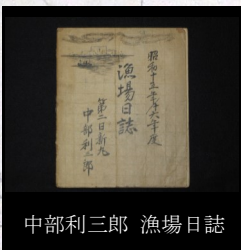 昭和十五年十六年度
漁場日誌
第二日新丸
中部利三郎
中部利三郎 漁場日誌